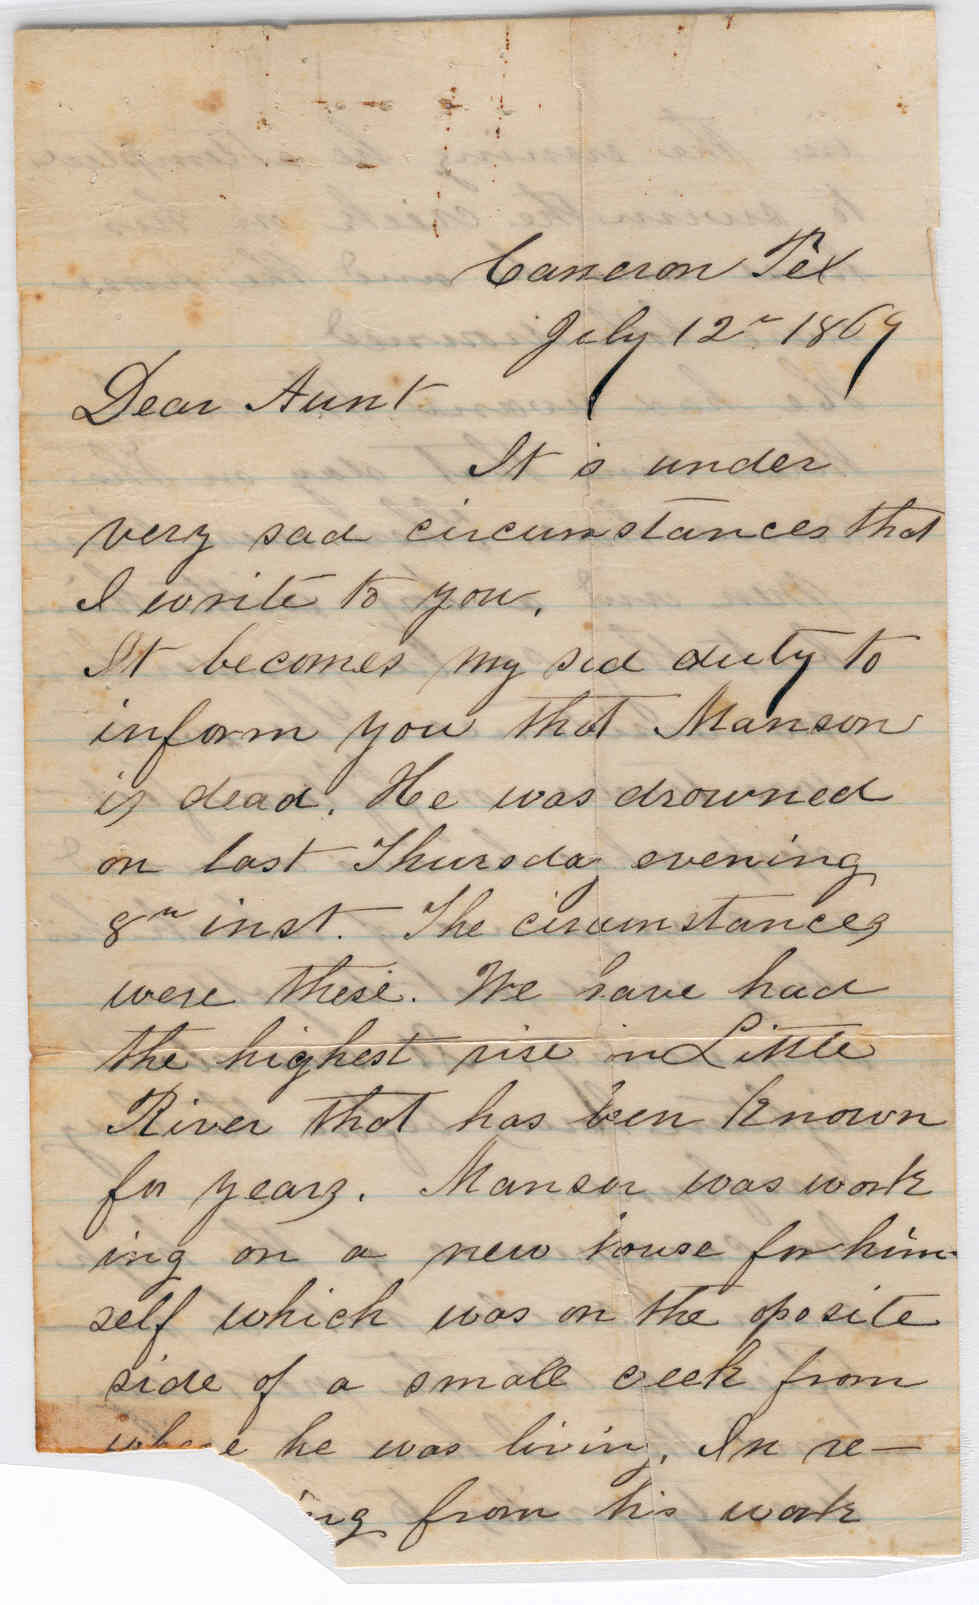 Cameron Tex
July 12th 1869
Dear Aunt
It is under
very sad circumstances that
I write to you.
It becomes my sad duty to
inform you that Manson
is dead. He was drowned
on last Thursday evening
8th inst. The circumstances
were these. We have had
the highest rise in Little
River that has been known
for years. Manson was work
ing on a new house for him-
self which was on the oposite
side of a small creek from
where he was living. In re-
ing from his work